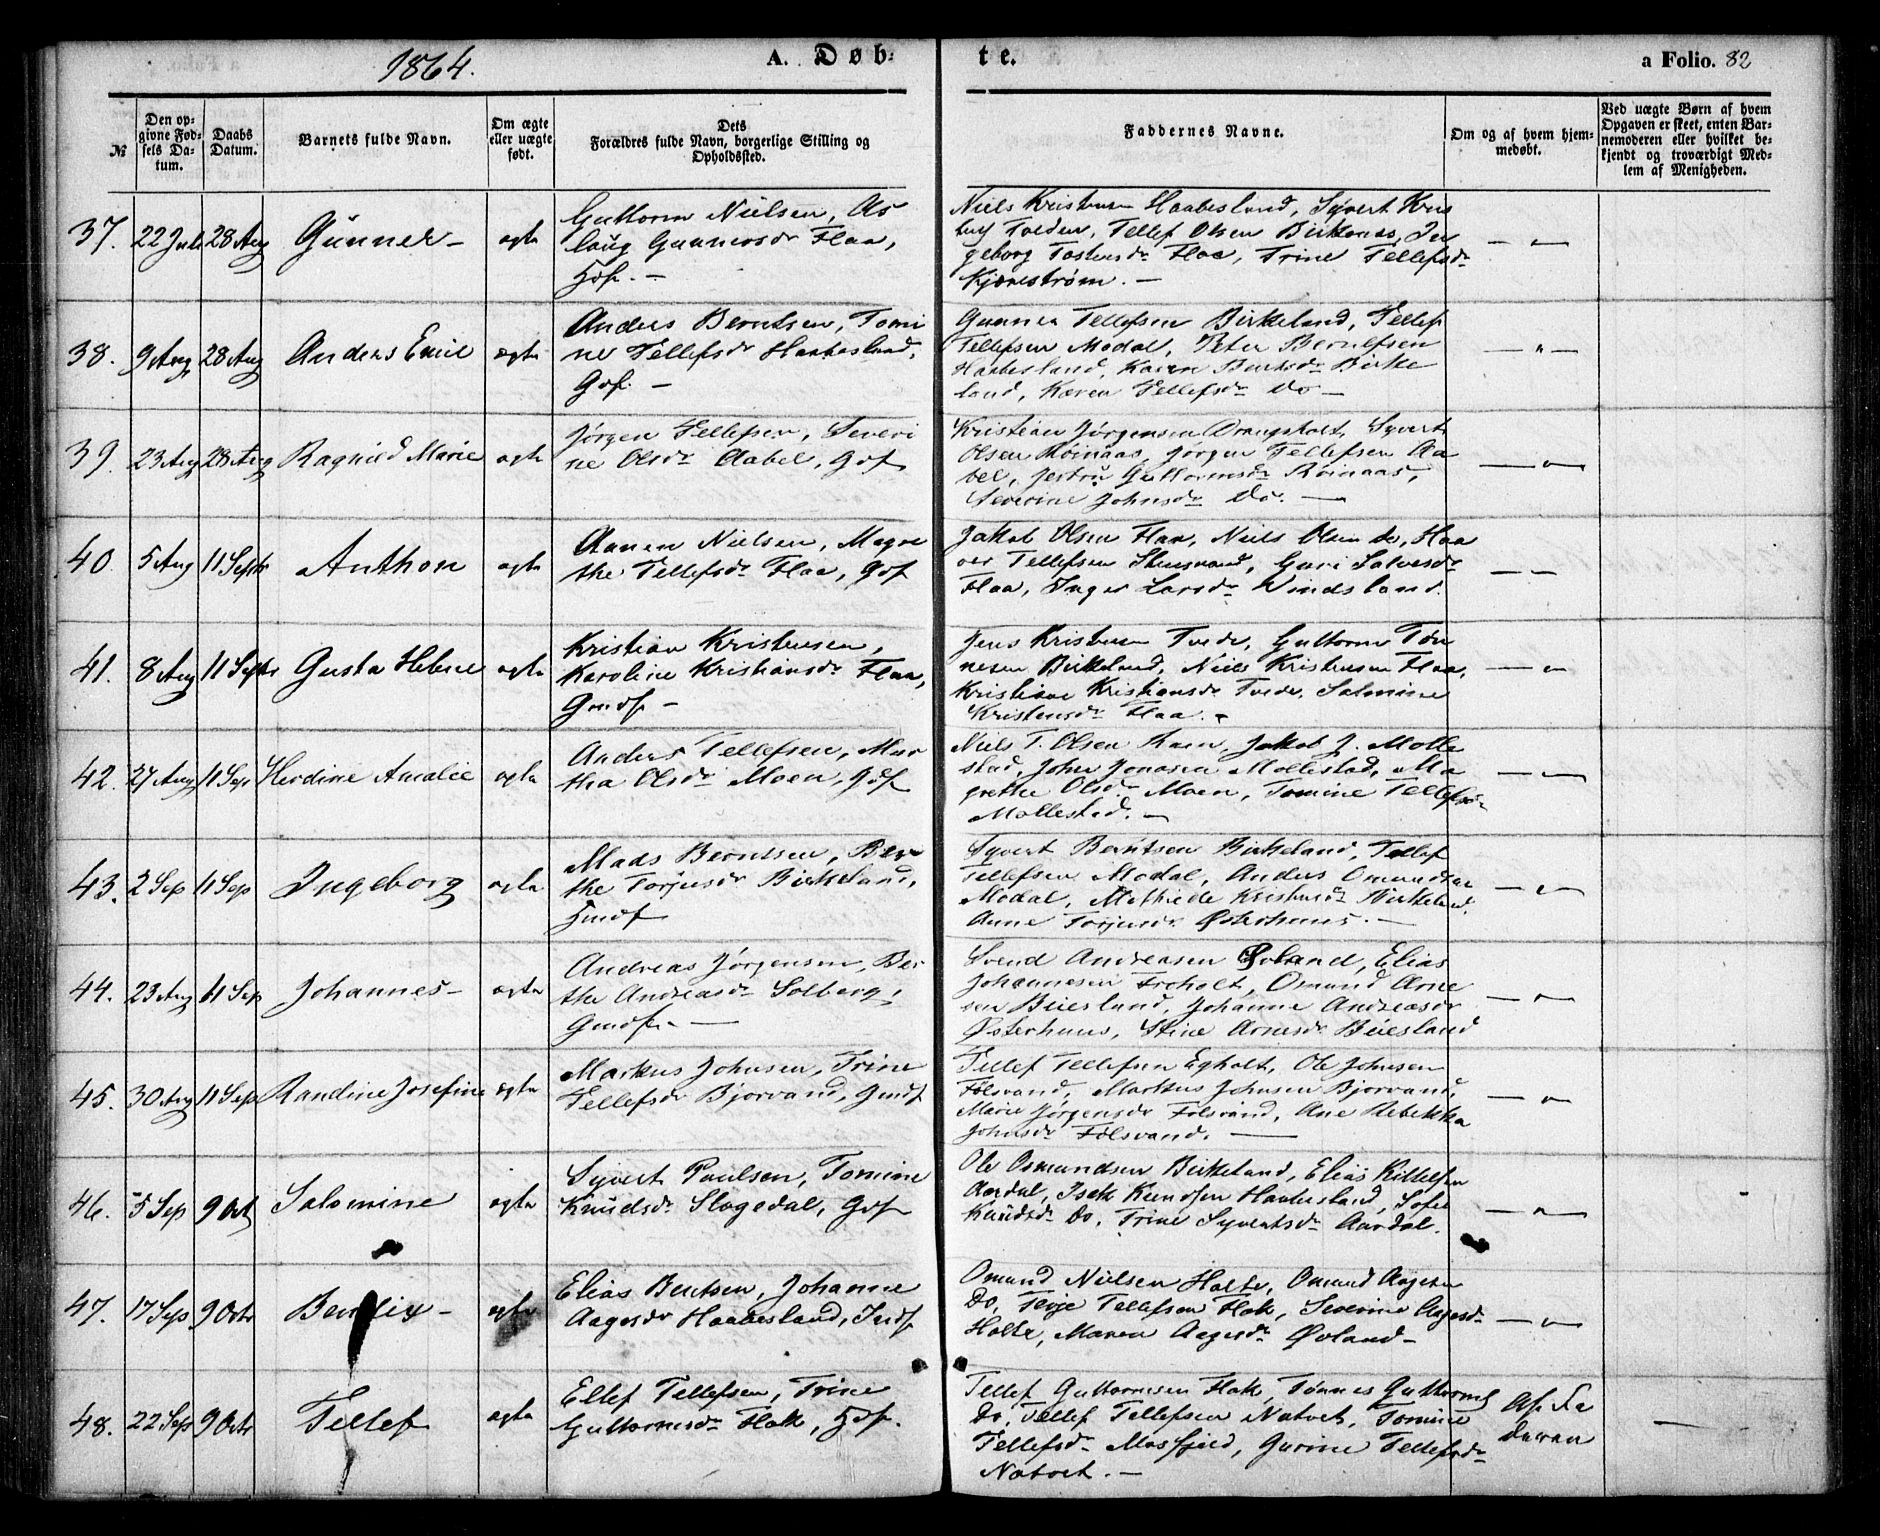 1864. A. Døb- te. a Folio. 82
№
Den opgivne Fødsels Datum.
Daabs Datum.
Barnets fulde Navn.
Om ægte eller uægte født.
Dets Forældres fulde Navn, borgerlige Stilling og Opholdssted.
Faddernes Navne.
Om og af hvem hjemmedøbt.
Ved uægte Børn af hvem Opgaven er skeet, enten Barnemoderen eller hvilket bekjendt og troværdigt Medlem af Menigheden.
37. 22 Juli 28 Aug Gunner- ægte
Guttorm Nielsen, As
laug Gunnersdr Flaa,
Hdf. —
Niels Kristensen Haabesland, Syvert Kris
tens Tveden, Tellef Olsen Birkenes, In
geborg Tostensdr Flaa, Trine Tellefsdr
Kjærestrøm. —
— " —
38. 9 Aug 28 Aug Anders Emil ægte
Anders Berntsen, Tomi
ne Tellefsdr Haabesland,
Gdf. —
Gunner Tellefsen Birkeland, Tellef
Tellefsen Modal, Peter Berntsen
Haabesland, Karen Berntsdr Birke
land, Karen Tellefsdr Do —
— " —
39. 23 Aug 28 Aug Ragnild Marie ægte
Jørgen Tellefsen, Severi
ne Olsdr Aabel, Gdf
Kristian Jørgensen Drangsholt, Syvert
Olsen Røinaas, Jørgen Tellefsen Aa
bel, Jertru Guttormsdr Røinaas,
Severine Johnsdr Do. —
— " —
40. 5 Aug 11 Septr Anthon ægte
Aanen Nielsen, Magre
the Tellefsdr Flaa, Gdf
Jakob Olsen Flaa, Niels Olsen do, Haa
ver Tellefsen Stensvand, Guri Salvesdr
Flaa, Inger Larsdr Vindsland.
— " —
41. 8 Aug 11 Septr Gusta Helene ægte
Kristian Kristensen,
Karoline Kristiansdr Flaa,
Gmdf —
Jens Kristensen Tvede, Guttorm Tøn
nesen Birkeland, Niels Kristensen Flaa,
Kristiane Kristiansdr Tvede, Salomine
Kristensdr Flaa. -
— " —
42. 27 Aug 11 Sep Herdine Amalie ægte
Anders Tellefsen, Mar
tha Olsdr Moen, Gdf
Niels T. Olsen, Jakob J. Molle
stad, John Jonasen Mollestad, Ma
grethe Olsdr Moen, Tomine Tellefsdr
Mollestad. —
— " —
43. 2 Sep 11 Sep Ingeborg ægte
Mads Berntsen, Ber
the Torjusdr Birkeland,
Hmdf
Syvert Berntsen Birkeland, Tellef
Tellefsen Modal, Anders Omundsen
Modal, Mathilde Kristensdr Birkeland,
Anne Torjusdr Østerhuus. —
— " —
44. 23 Aug 11 Sep Johannes- ægte
Andreas Jørgensen, Ber
the Andreasdr Solberg,
Gmdf. —
Svend Andreasen Øvland, Elias
Johannesen Froholt, Omund Arne
sen Beiesland, Johanne Andreasdr
Østerhuus, Stine Arnesdr Beiesland
— " —
45. 30 Aug 11 Sep Randine Josefine ægte
Markus Johnsen, Trine
Tellefsdr Bjorvand, Gmdf
Tellef Tellefsen Egholt, Ole Johnsen
Følsvand, Markus Johnsen Bjorvand,
Marie Jørgensdr Følsvand, Ane Rebekka
Johnsdr Følsvand. —
— " —
46. 5 Sep 9 Oct Salomine ægte
Syvert Paulsen, Tomine
Knudsdr Slogedal, Gdf
Ole Osmundsen Birkeland, Elias Kittelsen
Aardal, Isak Knudsen Haabesland, Sofie
Knudsdr Do, Trine Syvertsdr Aardal.
— " —
47. 17 Sep 9 Octr Bendix- ægte
Elias Bentsen, Johanne
Aagesdr Haabesland, Indf
Omund Nielsen Holte, Omund Aagesen
Do, Terje Tellefsen Hok, Severine Aagesdr
Holte, Maren Aagesdr Øvland-
— " —
48. 22 Sep 9 Octr Tellef ægte
Ellef Tellefsen, Trine
Guttormsdr Hok, Hdf.
Tellef Guttormsen Hok, Tønnes Guttorms
Do, Tellef Tellefsen Natvet, Tomine
Tellefsdr Mosfjeld, Gurine Tellefsdr
Natvet. —
Af Fa
deren
—